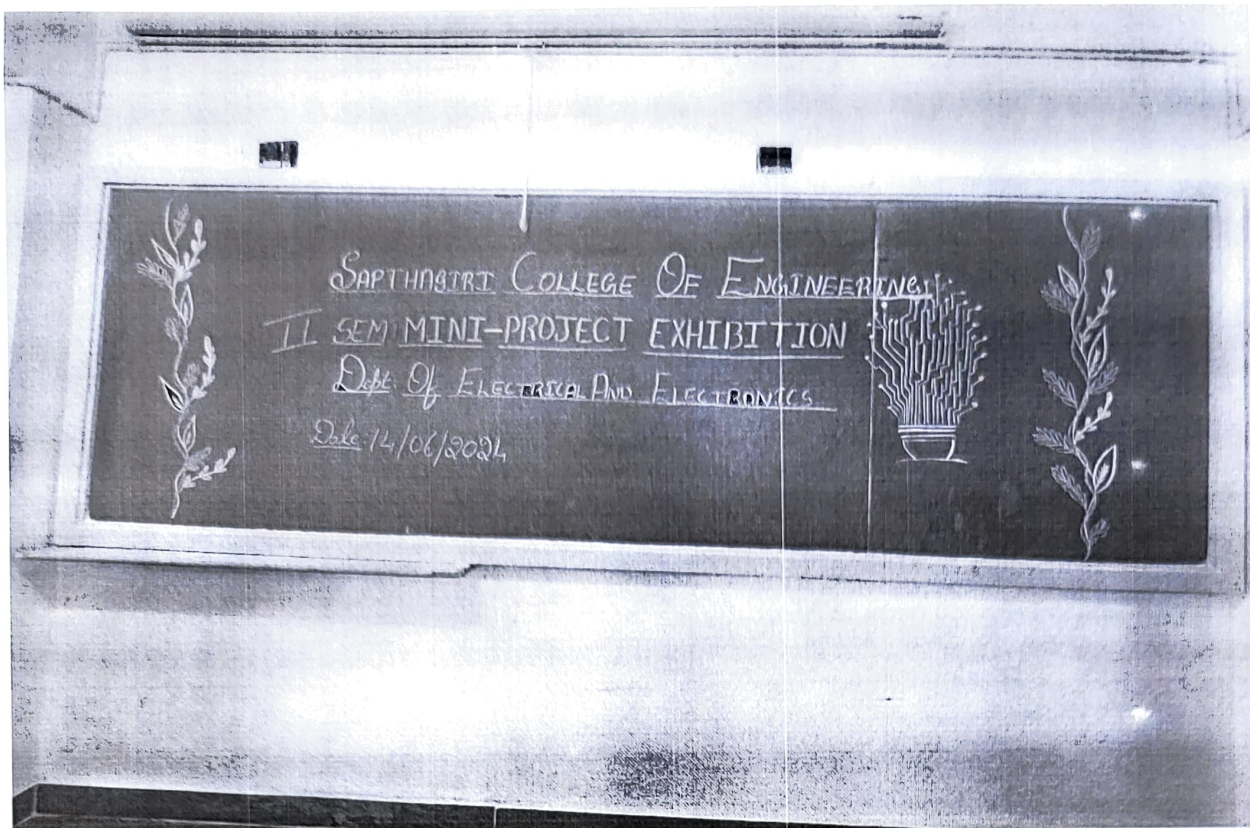 SAPTHAGIRI COLLEGE OF ENGINEERING
II SEM MINI-PROJECT EXHIBITION
Dept. Of ELECTRICAL AND ELECTRONICS
Date 14/06/2024